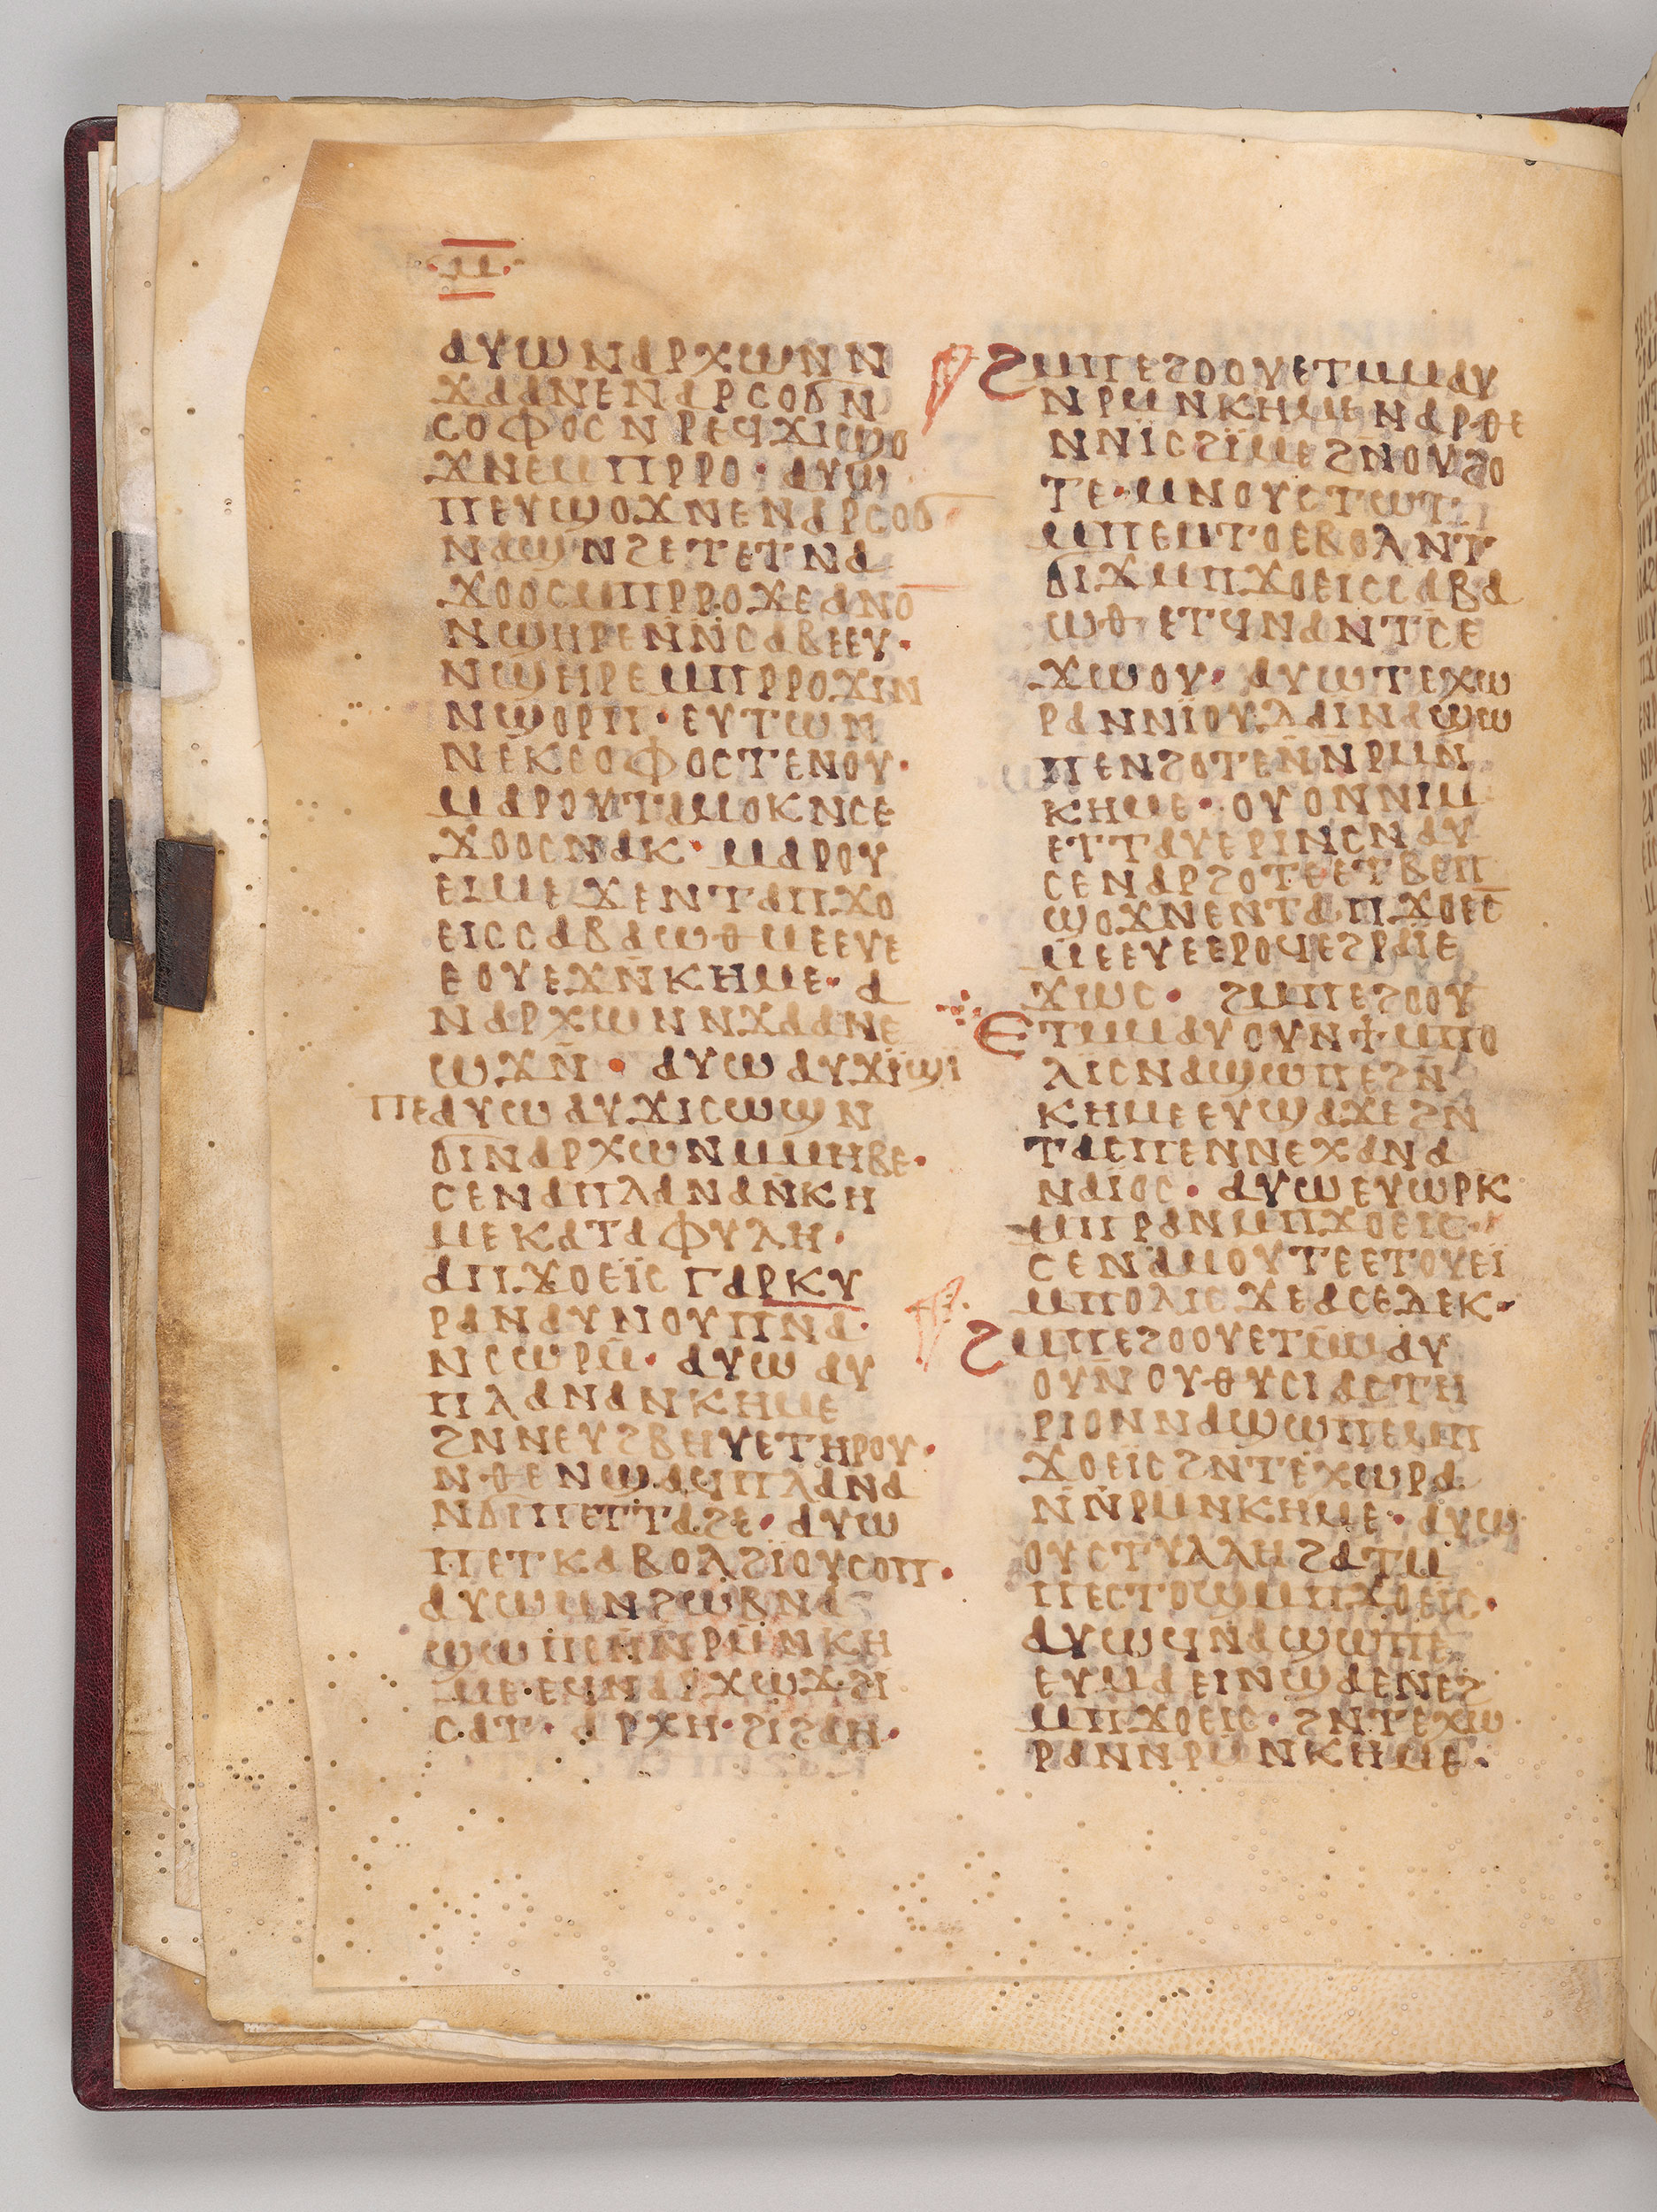 ⲙ
ⲁⲩⲱⲛⲁⲣⲭⲱⲛⲛ
ϫⲁⲁⲛⲉⲛⲁⲣⲥⲟϭⲛ
ⲥⲟⲫⲟⲥⲛⲣⲉϥϫⲓϣⲟ
ϫⲛⲉⲙⲡⲣⲣⲟ· ⲁⲩⲱ
ⲡⲉⲩϣⲟϫⲛⲉⲛⲁⲣⲥⲟϭ
ⲛⲁϣⲛϩⲉⲧⲉⲧⲛⲁ
ϫⲟⲟⲥⲙⲡⲣⲣⲟϫⲉⲁⲛⲟ
ⲛϣⲏⲣⲉⲛ̄ⲛ̄ⲥⲁⲃⲉⲉⲩ·
ⲛϣⲏⲣⲉⲙⲡⲣⲣⲟϫⲓⲛ
ⲛϣⲟⲣⲡ· ⲉⲩⲧⲱⲛ
ⲛⲉⲕⲥⲟⲫⲟⲥⲧⲉⲛⲟⲩ·
ⲙⲁⲣⲟⲩⲧⲁⲙⲟⲕⲛⲥⲉ
ϫⲟⲟⲥⲛⲁⲕ· ⲙⲁⲣⲟⲩ
ⲉⲓⲙⲉϫⲉⲛⲧⲁⲡϫⲟ
ⲉⲓⲥⲥⲁⲃⲁⲱⲑⲙⲉⲉⲩⲉ
ⲉⲟⲩⲉϫⲛ̄ⲕⲏⲙⲉ· ⲁ
ⲛⲁⲣⲭⲱⲛⲛϫⲁⲁⲛⲉ
ⲱϫⲛ̄· ⲁⲩⲱⲁⲩϫⲓ̈ϣⲓ̈
ⲡⲉⲁⲩⲱⲁⲩϫⲓⲥⲱⲱⲛ
ϭⲓⲛⲁⲣⲭⲱⲛⲙⲙⲏⲃⲉ·
ⲥⲉⲛⲁⲡⲗⲁⲛⲁⲛ̄ⲕⲏ
ⲙⲉⲕⲁⲧⲁⲫⲩⲗⲏ·
ⲁⲡϫⲟⲉⲓ̈ⲥⲅⲁⲣⲕⲩ
ⲣⲁⲛⲁⲩⲛⲟⲩⲡⲛⲁ·
ⲛⲥⲱⲣⲙ̄· ⲁⲩⲱⲁⲩ
ⲡⲗⲁⲛⲁⲛⲕⲏⲙⲉ
ϩⲛⲛⲉⲩϩⲃⲏⲩⲉⲧⲏⲣⲟⲩ·
ⲛⲑⲉⲛϣⲁϥⲡⲗⲁⲛⲁ
ⲛϭⲓⲡⲉⲧⲧⲁϩⲉ· ⲁⲩⲱ
ⲡⲉⲧⲕⲁⲃⲟⲗϩⲓ̈ⲟⲩⲥⲟⲡ·
ⲁⲩⲱⲙⲛϩⲱⲃⲛⲁ
ϣⲱⲡⲉⲛ̄ⲛ̄ⲣⲙ̄ⲛⲕⲏ
ⲙⲉ·ⲉϥⲛⲁⲣϫⲱϫϩⲓ
ⲥⲁⲧ· ⲁⲣⲭⲏ·ϩⲓϩⲁⲏ·
ϩⲙⲡⲉϩⲟⲟⲩⲉⲧⲙⲙⲁⲩ
ⲛⲣⲙⲛⲕⲏⲙⲉⲛⲁⲣⲑⲉ
ⲛⲛⲓ̈ⲥϩⲓ̈ⲙⲉϩⲛⲟⲩϩⲟ
ⲧⲉ· ⲙⲛⲟⲩⲥⲧⲱⲧ
ⲙⲡⲉⲙⲧⲟⲉⲃⲟⲗⲛⲧ
ϭⲓϫⲙⲡϫⲟⲉⲓⲥⲥⲁⲃⲁ
ⲱⲑⲉⲧϥⲛⲁⲛⲧⲥⲉ
ϫⲱⲟⲩ· ⲁⲩⲱⲧⲉⲭⲱ
ⲣⲁⲛⲛⲓ̈ⲟⲩⲇⲁⲓⲛⲁϣⲱ
ⲡⲉⲛϩⲟⲧⲉⲛ̄ⲛⲣⲙⲛ
ⲕⲏⲙⲉ· ⲟⲩⲟⲛⲛⲓⲙ
ⲉⲧⲧⲁⲩⲉⲣⲓⲛⲥⲛⲁⲩ
ⲥⲉⲛⲁⲣϩⲟⲧⲉⲉⲧⲃⲉⲡ
ϣⲟϫⲛⲉⲛⲧⲁⲡϫⲟⲉⲥ
ⲙⲉⲉⲩⲉⲉⲣⲟϥⲉϩⲣⲁⲓ̈ⲉ
ϫⲱⲥ· ϩⲙⲡⲉϩⲟⲟⲩ
ⲉⲧⲙⲙⲁⲩⲟⲩⲛϯⲙⲡⲟ
ⲗⲓ̈ⲥⲛⲁϣⲱⲡⲉϩⲛ̄
ⲕⲏⲙⲉⲉⲩϣⲁϫⲉϩⲛ
ⲧⲁⲥⲡⲉⲛⲛⲉⲭⲁⲛⲁ
ⲛⲁⲓ̈ⲟⲥ· ⲁⲩⲱⲉⲩⲱⲣⲕ
ⲙⲡⲣⲁⲛⲙⲡϫⲟⲉⲓⲥ·
ⲥⲉⲛⲁⲙⲟⲩⲧⲉⲉⲧⲟⲩⲉⲓ̈
ⲙⲡⲟⲗⲓⲥϫⲉⲁⲥⲉⲇⲉⲕ·
ϩⲙⲡⲉϩⲟⲟⲩⲉⲧⲙ̄ⲙⲁⲩ
ⲟⲩⲛ̄ⲟⲩⲑⲩⲥⲓⲁⲥⲧⲏ
ⲣⲓⲟⲛⲛⲁϣⲱⲡⲉⲙⲡ
ϫⲟⲉⲓ̈ⲥϩⲛⲧⲉⲭⲱⲣⲁ
ⲛ̄ⲛ̄ⲣⲙⲛⲕⲏⲙⲉ· ⲁⲩⲱ
ⲟⲩⲥⲧⲩⲗⲗⲏϩⲁⲧⲙ
ⲡⲉⲥⲧⲟϣⲙⲡϫⲟⲉⲓ̈ⲥ·
ⲁⲩⲱϥⲛⲁϣⲱⲡⲉ
ⲉⲩⲙⲁⲉⲓⲛϣⲁⲉⲛⲉϩ
ⲙⲡϫⲟⲉⲓⲥ· ϩⲛⲧⲉⲭⲱ
ⲣⲁⲛⲛⲣⲙⲛⲕⲏⲙⲉ·